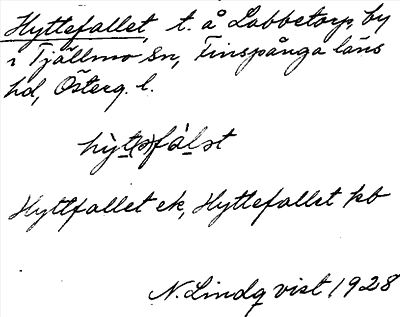 Hyttefallet, t. å Labbetorp, by
i Tjällmo sn, Finspånga läns
hd, Österg. l.
hỳt(ə)fàlət
Hyttfallet ek, Hyttefallet kb
N. Lindqvist 1928